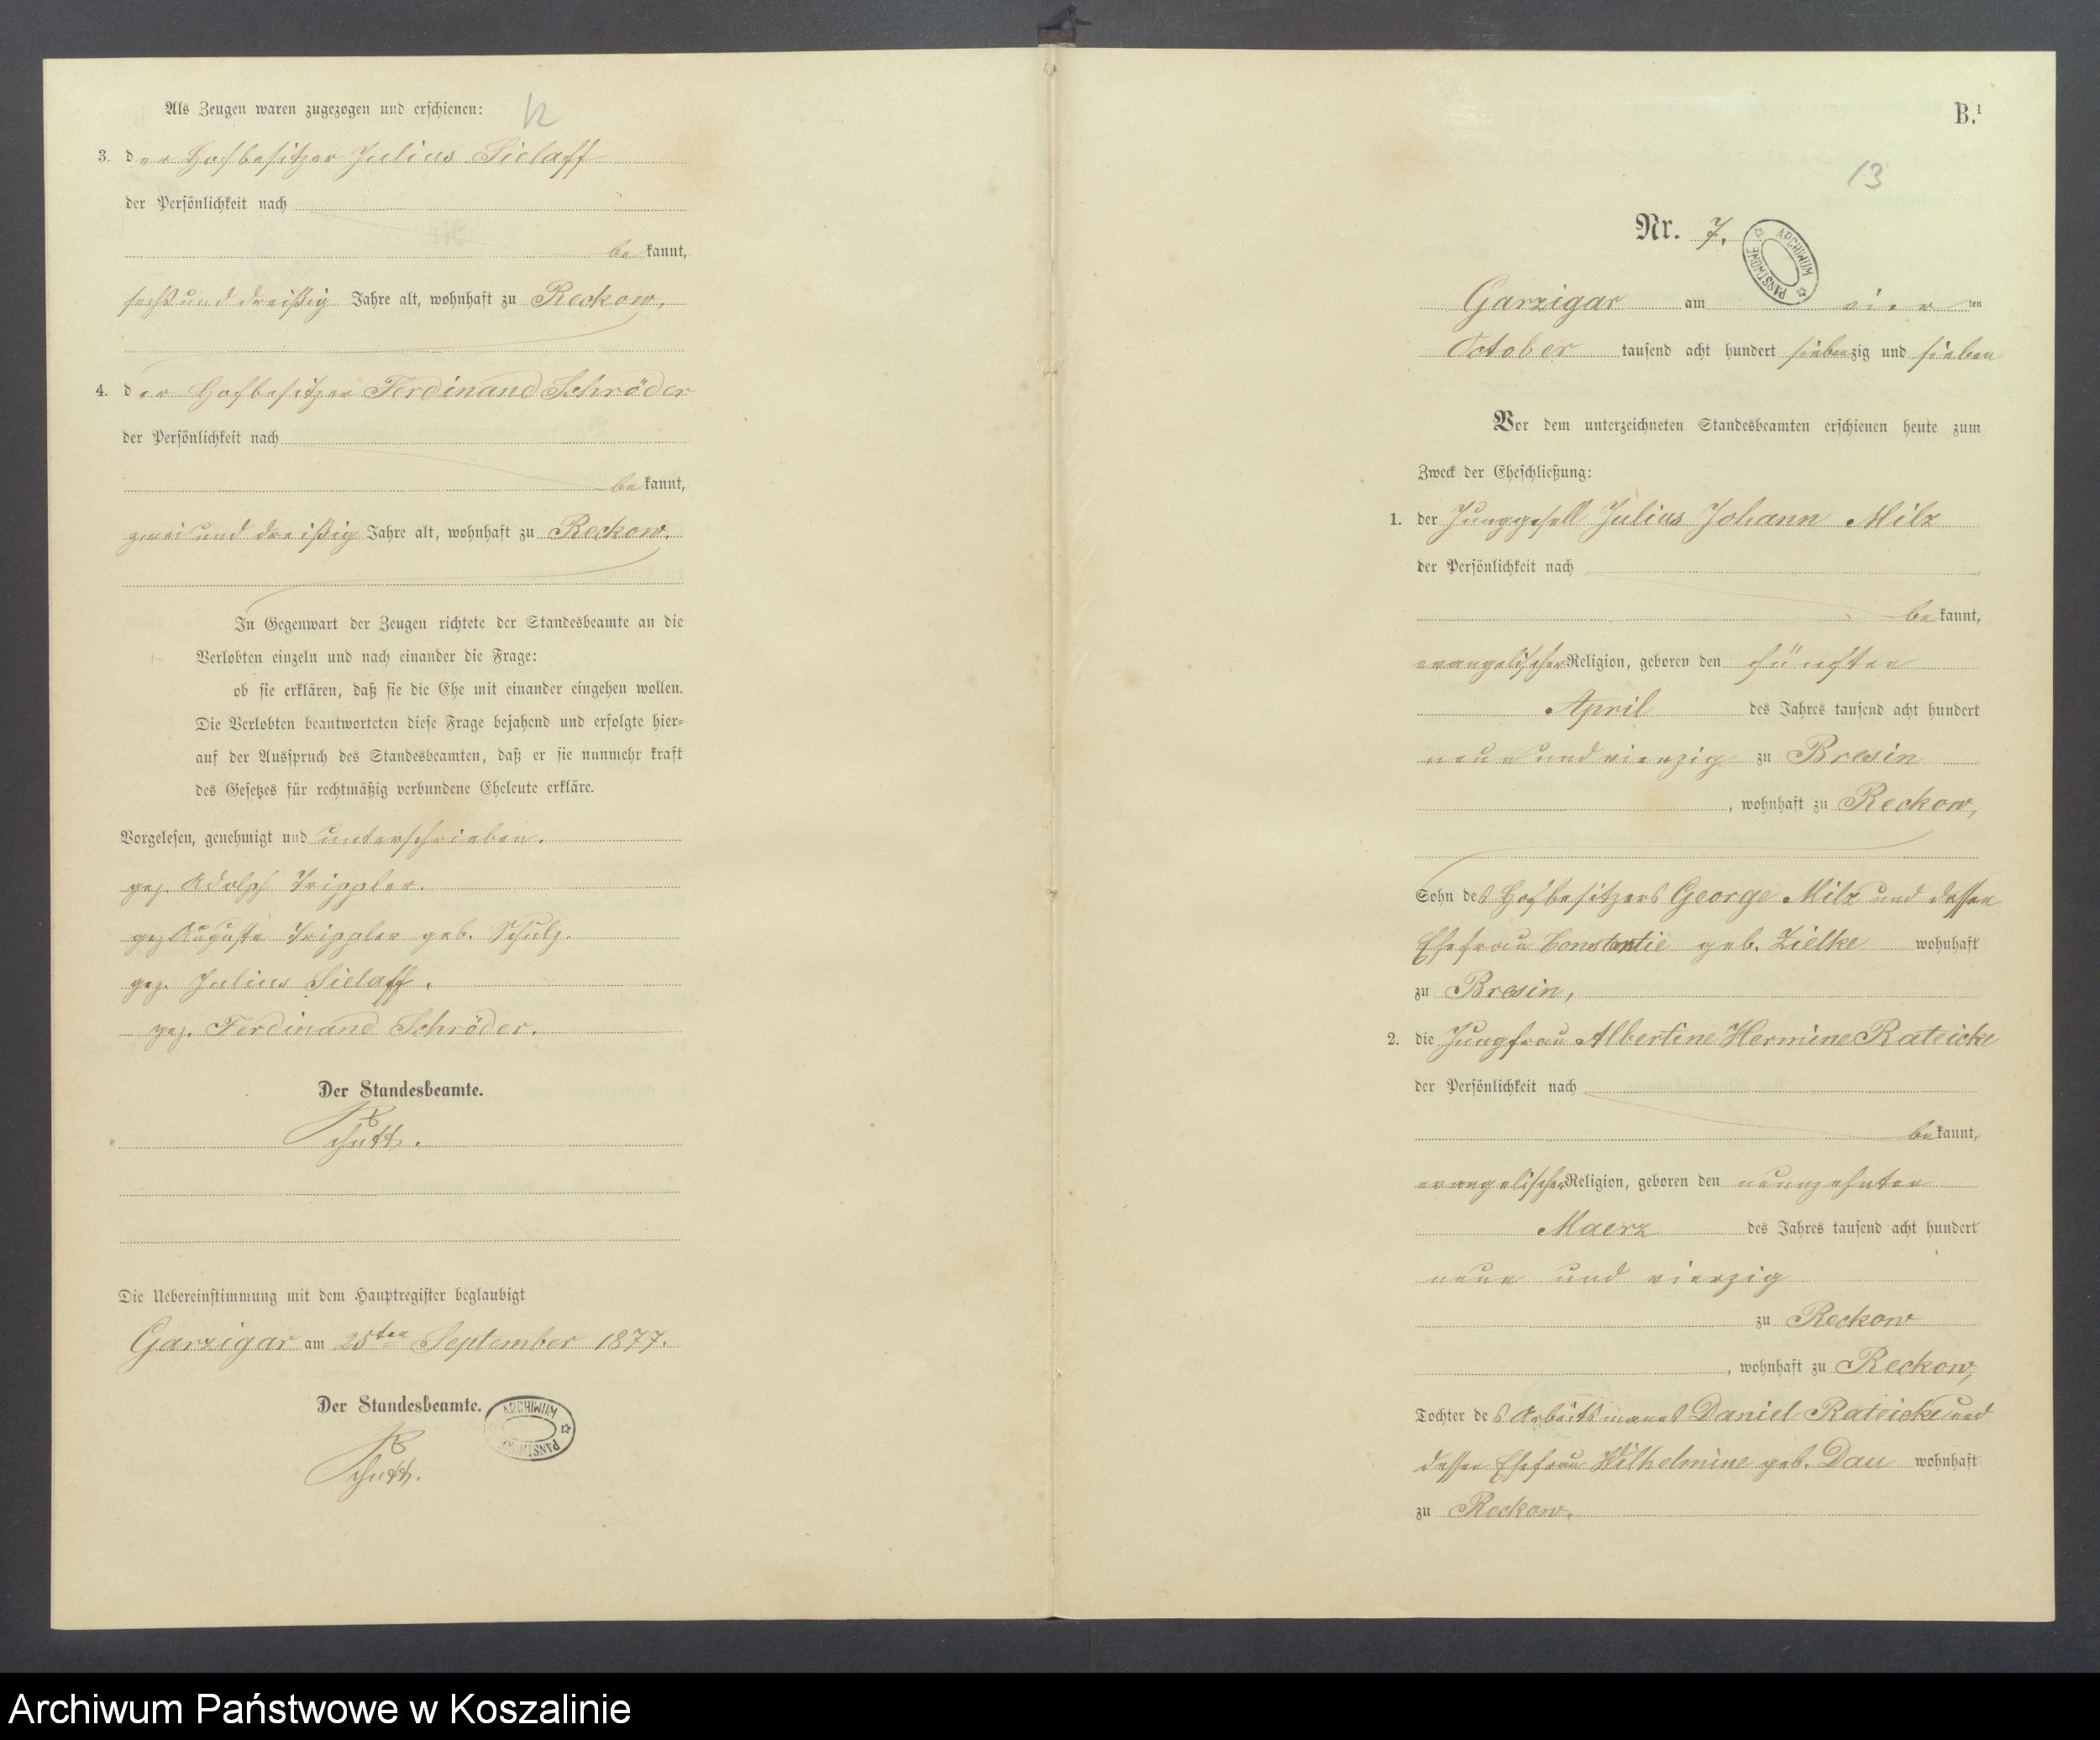 12
Als Zeugen waren zugezogen und erschienen:
3. der Hofbesitzer Julius Sielaff
der Persönlichkeit nach
bekannt,
sechs und dreißig Jahre alt, wohnhaft zu Reckow,
4. der Hofbesitzer Ferdinand Schröder
der Persönlichkeit nach
bekannt,
zwei und dreißig Jahre alt, wohnhaft zu Reckow.
In Gegenwart der Zeugen richtete der Standesbeamte an die
Verlobten einzeln und nach einander die Frage:
ob sie erklären, daß sie die Ehe mit einander eingehen wollen.
Die Verlobten beantworteten diese Frage bejahend und erfolgte hier-
auf der Ausspruch des Standesbeamten, daß er sie nunmehr kraft
des Gesetzes für rechtmäßig verbundene Eheleute erkläre.
Vorgelesen, genehmigt und unterschrieben.
gez. Adolph Trippler.
gez. Auguste Trippler geb. Schulz.
gez. Julius Sielaff.
gez. Ferdinand Schröder.
Der Standesbeamte.
Die Uebereinstimmung mit dem Hauptregister beglaubigt
Garzigar am 25ten September 1877.
Der Standesbeamte.
ARCHIWUM PAŃSTWOWE
B.1
13
Nr. 7.
ARCHIWUM PAŃSTWOWE
Garzigar am vierten
October tausend acht hundert siebenzig und sieben
Vor dem unterzeichneten Standesbeamten erschienen heute zum
Zweck der Eheschließung:
1. der Junggesell Julius Johann Milz
der Persönlichkeit nach
bekannt,
evangelischer Religion, geboren den fünften
April des Jahres tausend acht hundert
neun und vierzig zu Bresin
, wohnhaft zu Reckow,
Sohn des Hofbesitzers George Milz und dessen
Ehefrau Constantie geb. Zielke wohnhaft
zu Bresin,
2. die Jungfrau Albertine Hermine Rateicke
der Persönlichkeit nach
bekannt,
evangelischer Religion, geboren den neunzehnten
Maerz des Jahres tausend acht hundert
neun und vierzig
zu Reckow
, wohnhaft zu Reckow,
Tochter des Arbeitsmanns Daniel Rateicke und
dessen Ehefrau Wilhelmine geb. Dau wohnhaft
zu Reckow.
Archiwum Państwowe w Koszalinie